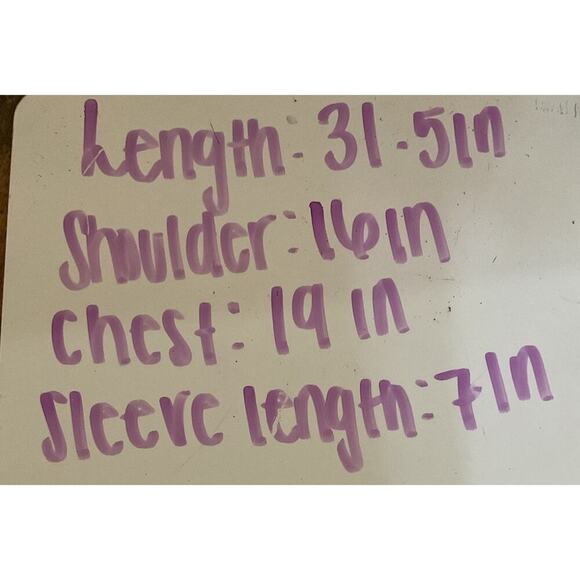 Length: 31.5in
Shoulder: 16in
Chest: 19 in
Sleeve length: 7in